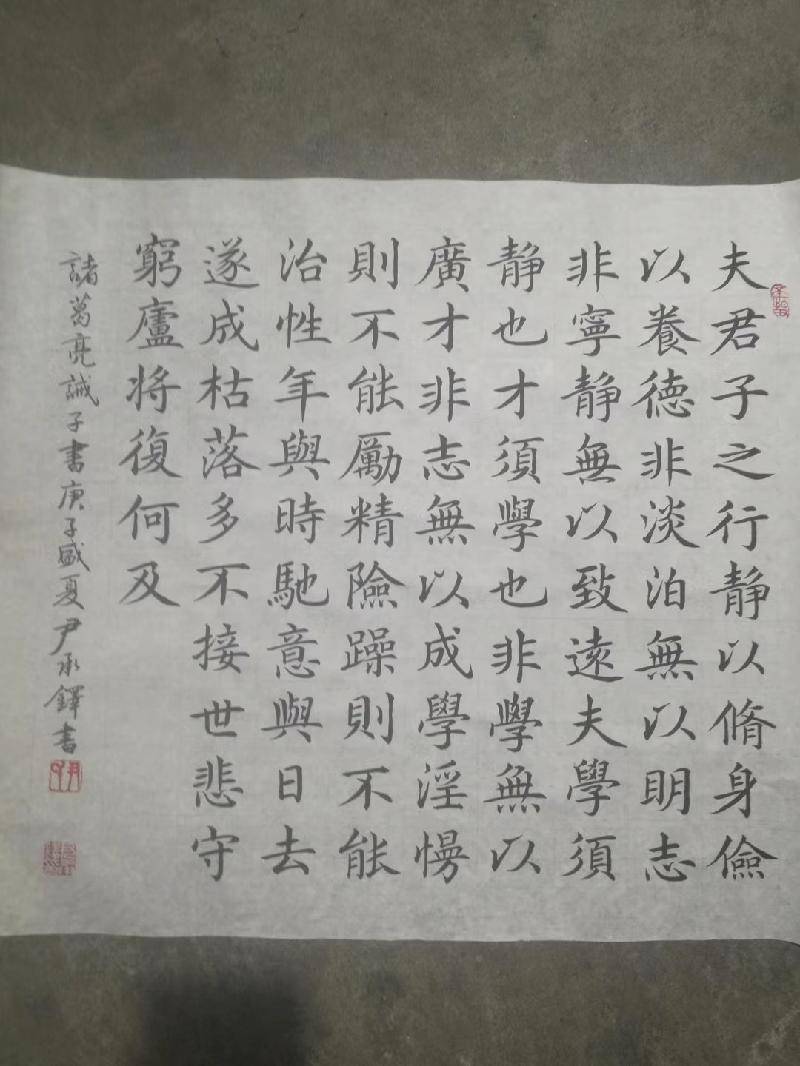 夫君子之行静以脩身儉
以養德非淡泊無以明志
非寧静無以致遠夫學須
静也才須學也非學無以
廣才非志無以成學淫慢
則不能勵精險躁則不能
治性年與時馳意與日去
遂成枯落多不接世悲守
窮廬将復何及
諸葛亮誡子書庚子盛夏尹承鐸書